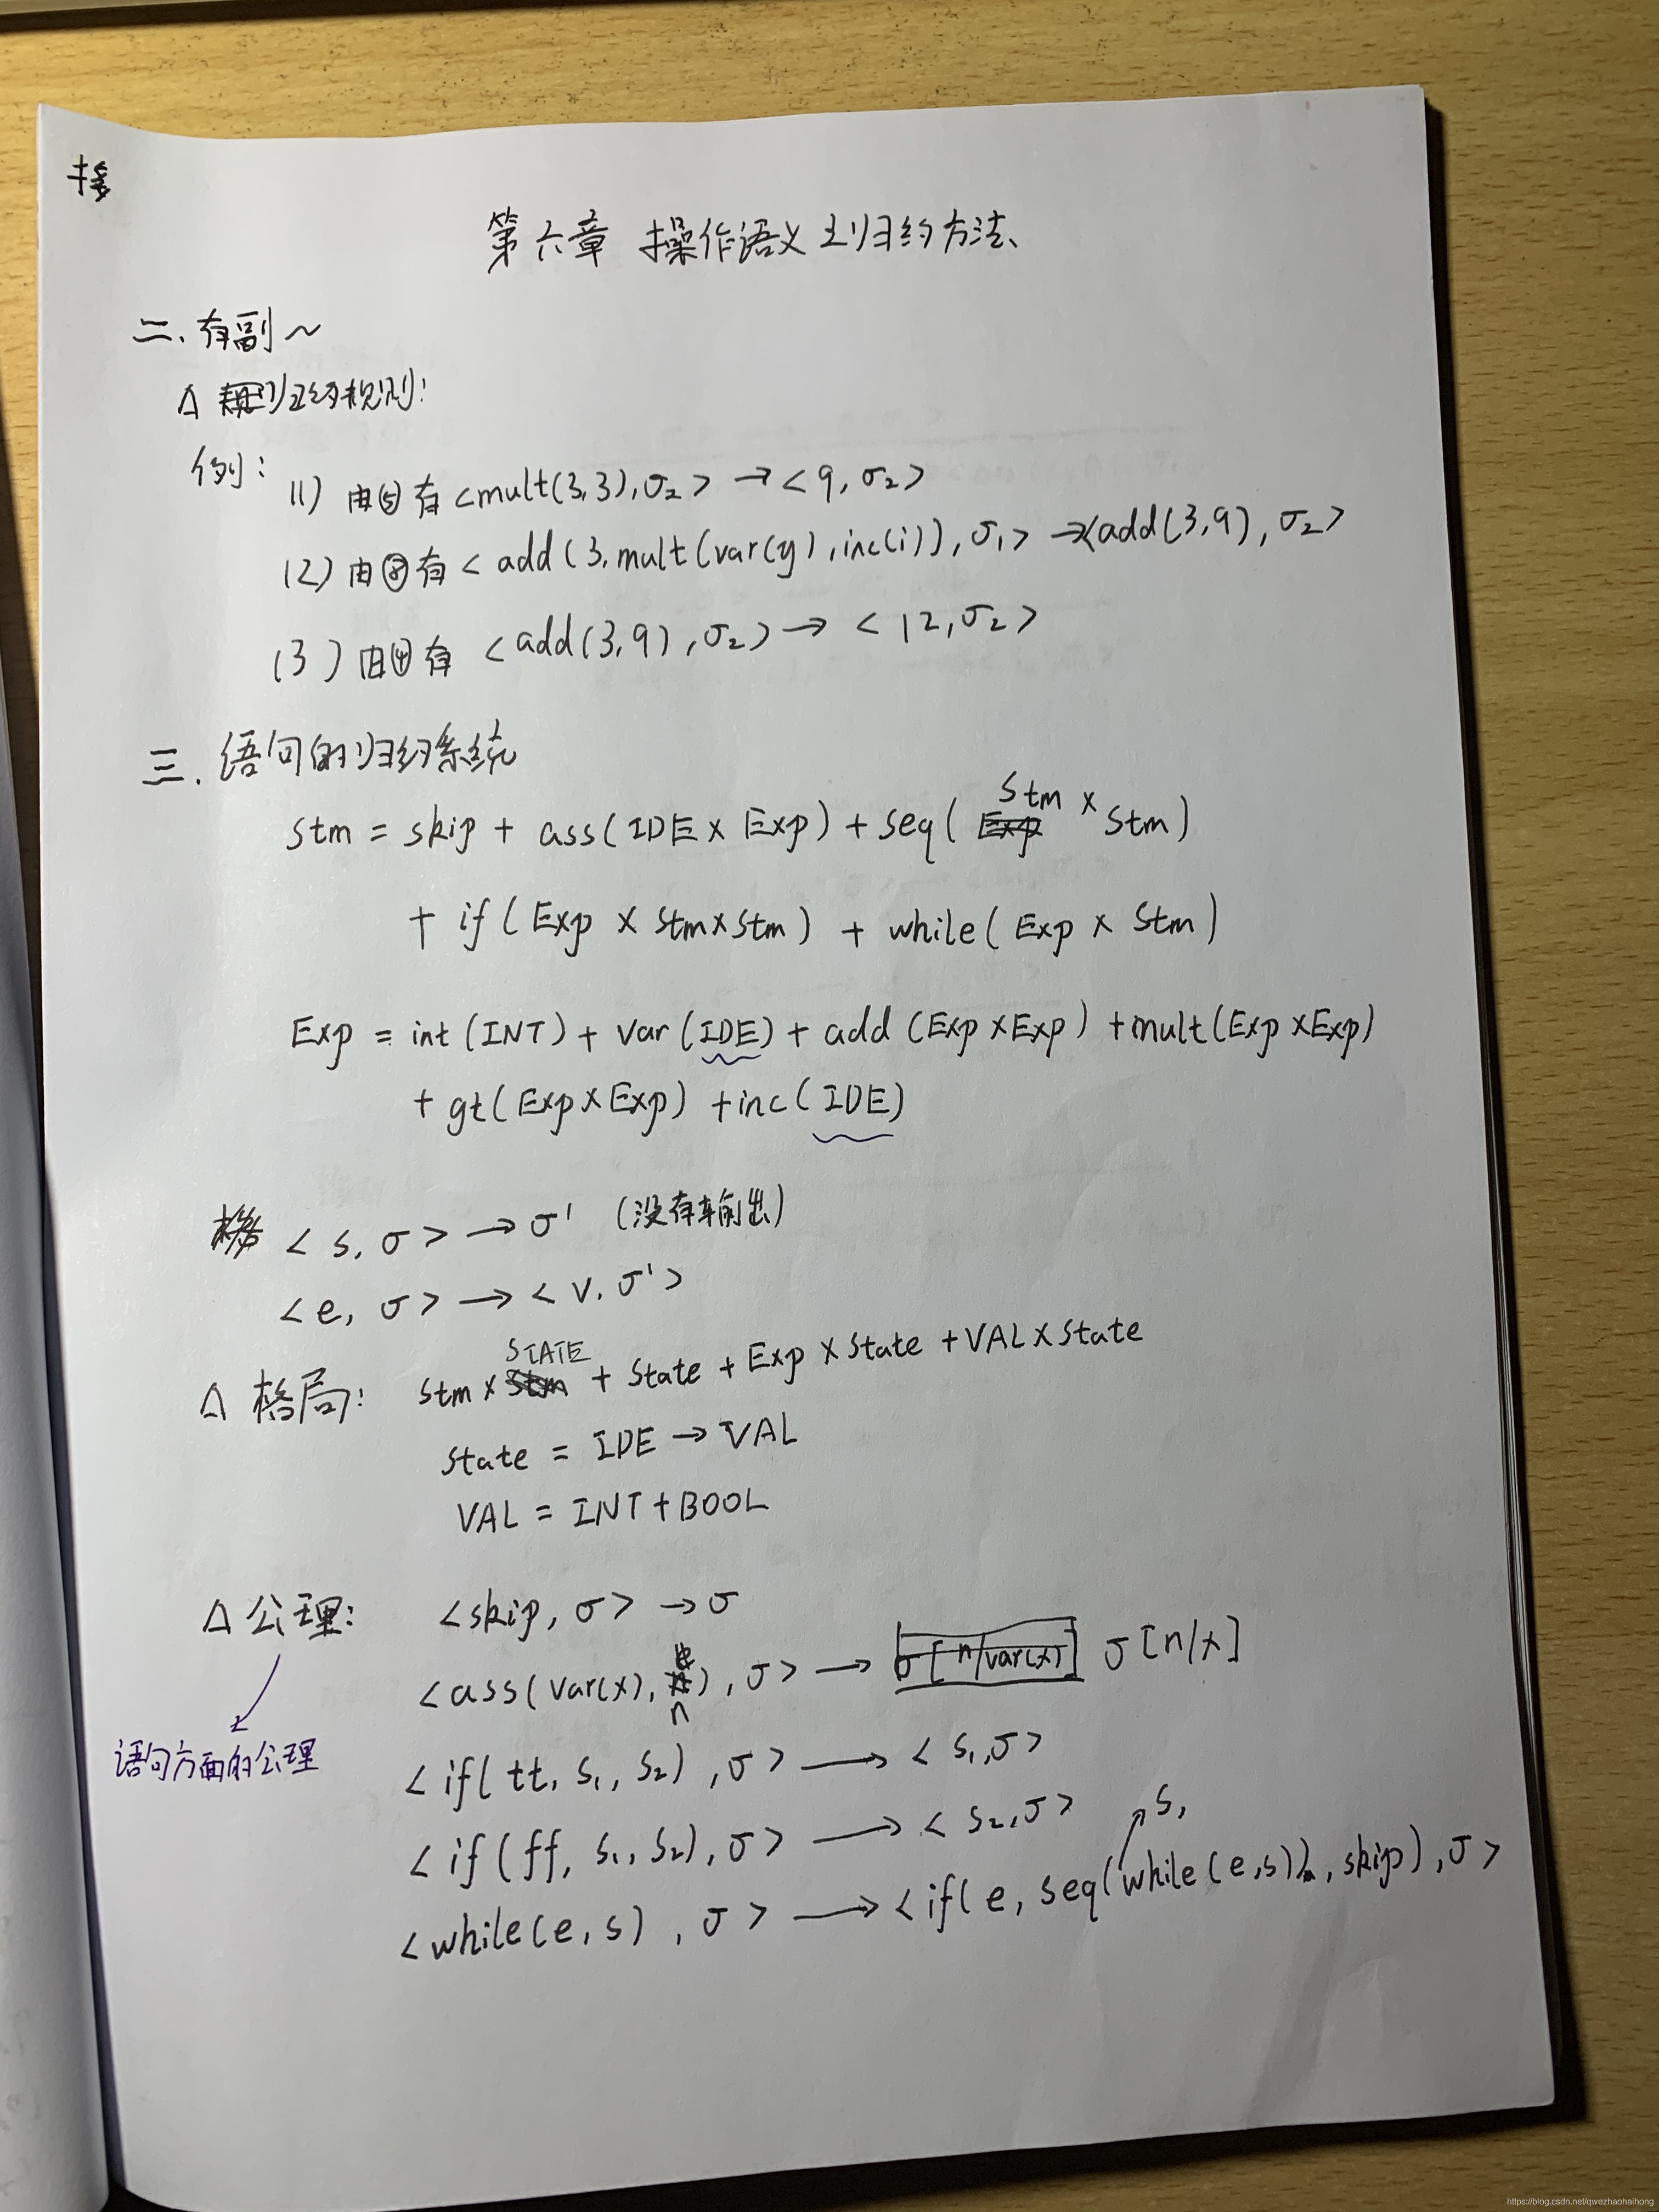 接
第六章 操作语义之归约方法
二. 有副~
△ 归约规则:
例: (1) 由⑤有 <mult(3,3),σ₂> → <9,σ₂>
(2) 由②有 < add(3,mult(var(y),inc(i)),σ₁> → <add(3,9),σ₂>
(3) 由④有 <add(3,9),σ₂> → <12,σ₂>
三. 语句的归约系统
Stm = skip + ass(IDE × Exp) + seq( Stm × Stm)
+ if(Exp × Stm × Stm) + while(Exp × Stm)
Exp = int(INT) + var(IDE) + add(Exp × Exp) + mult(Exp × Exp)
+ gt(Exp × Exp) + inc(IDE)
< s, σ > → σ' (没有输出)
<e, σ > → < v, σ'>
△ 格局: Stm × STATE + State + Exp × State + VAL × State
State = IDE → VAL
VAL = INT + BOOL
△ 公理: <skip, σ> → σ
<ass(var(x), n), σ> → σ[n/x]
语句方面的公理
<if(tt, s₁, s₂), σ> → <s₁,σ>
<if(ff, s₁, s₂), σ> → <s₂,σ>
s,
<while(e, s), σ> → <if(e, seq(while(e,s)), skip), σ>
https://blog.csdn.net/qwezhaohaihong